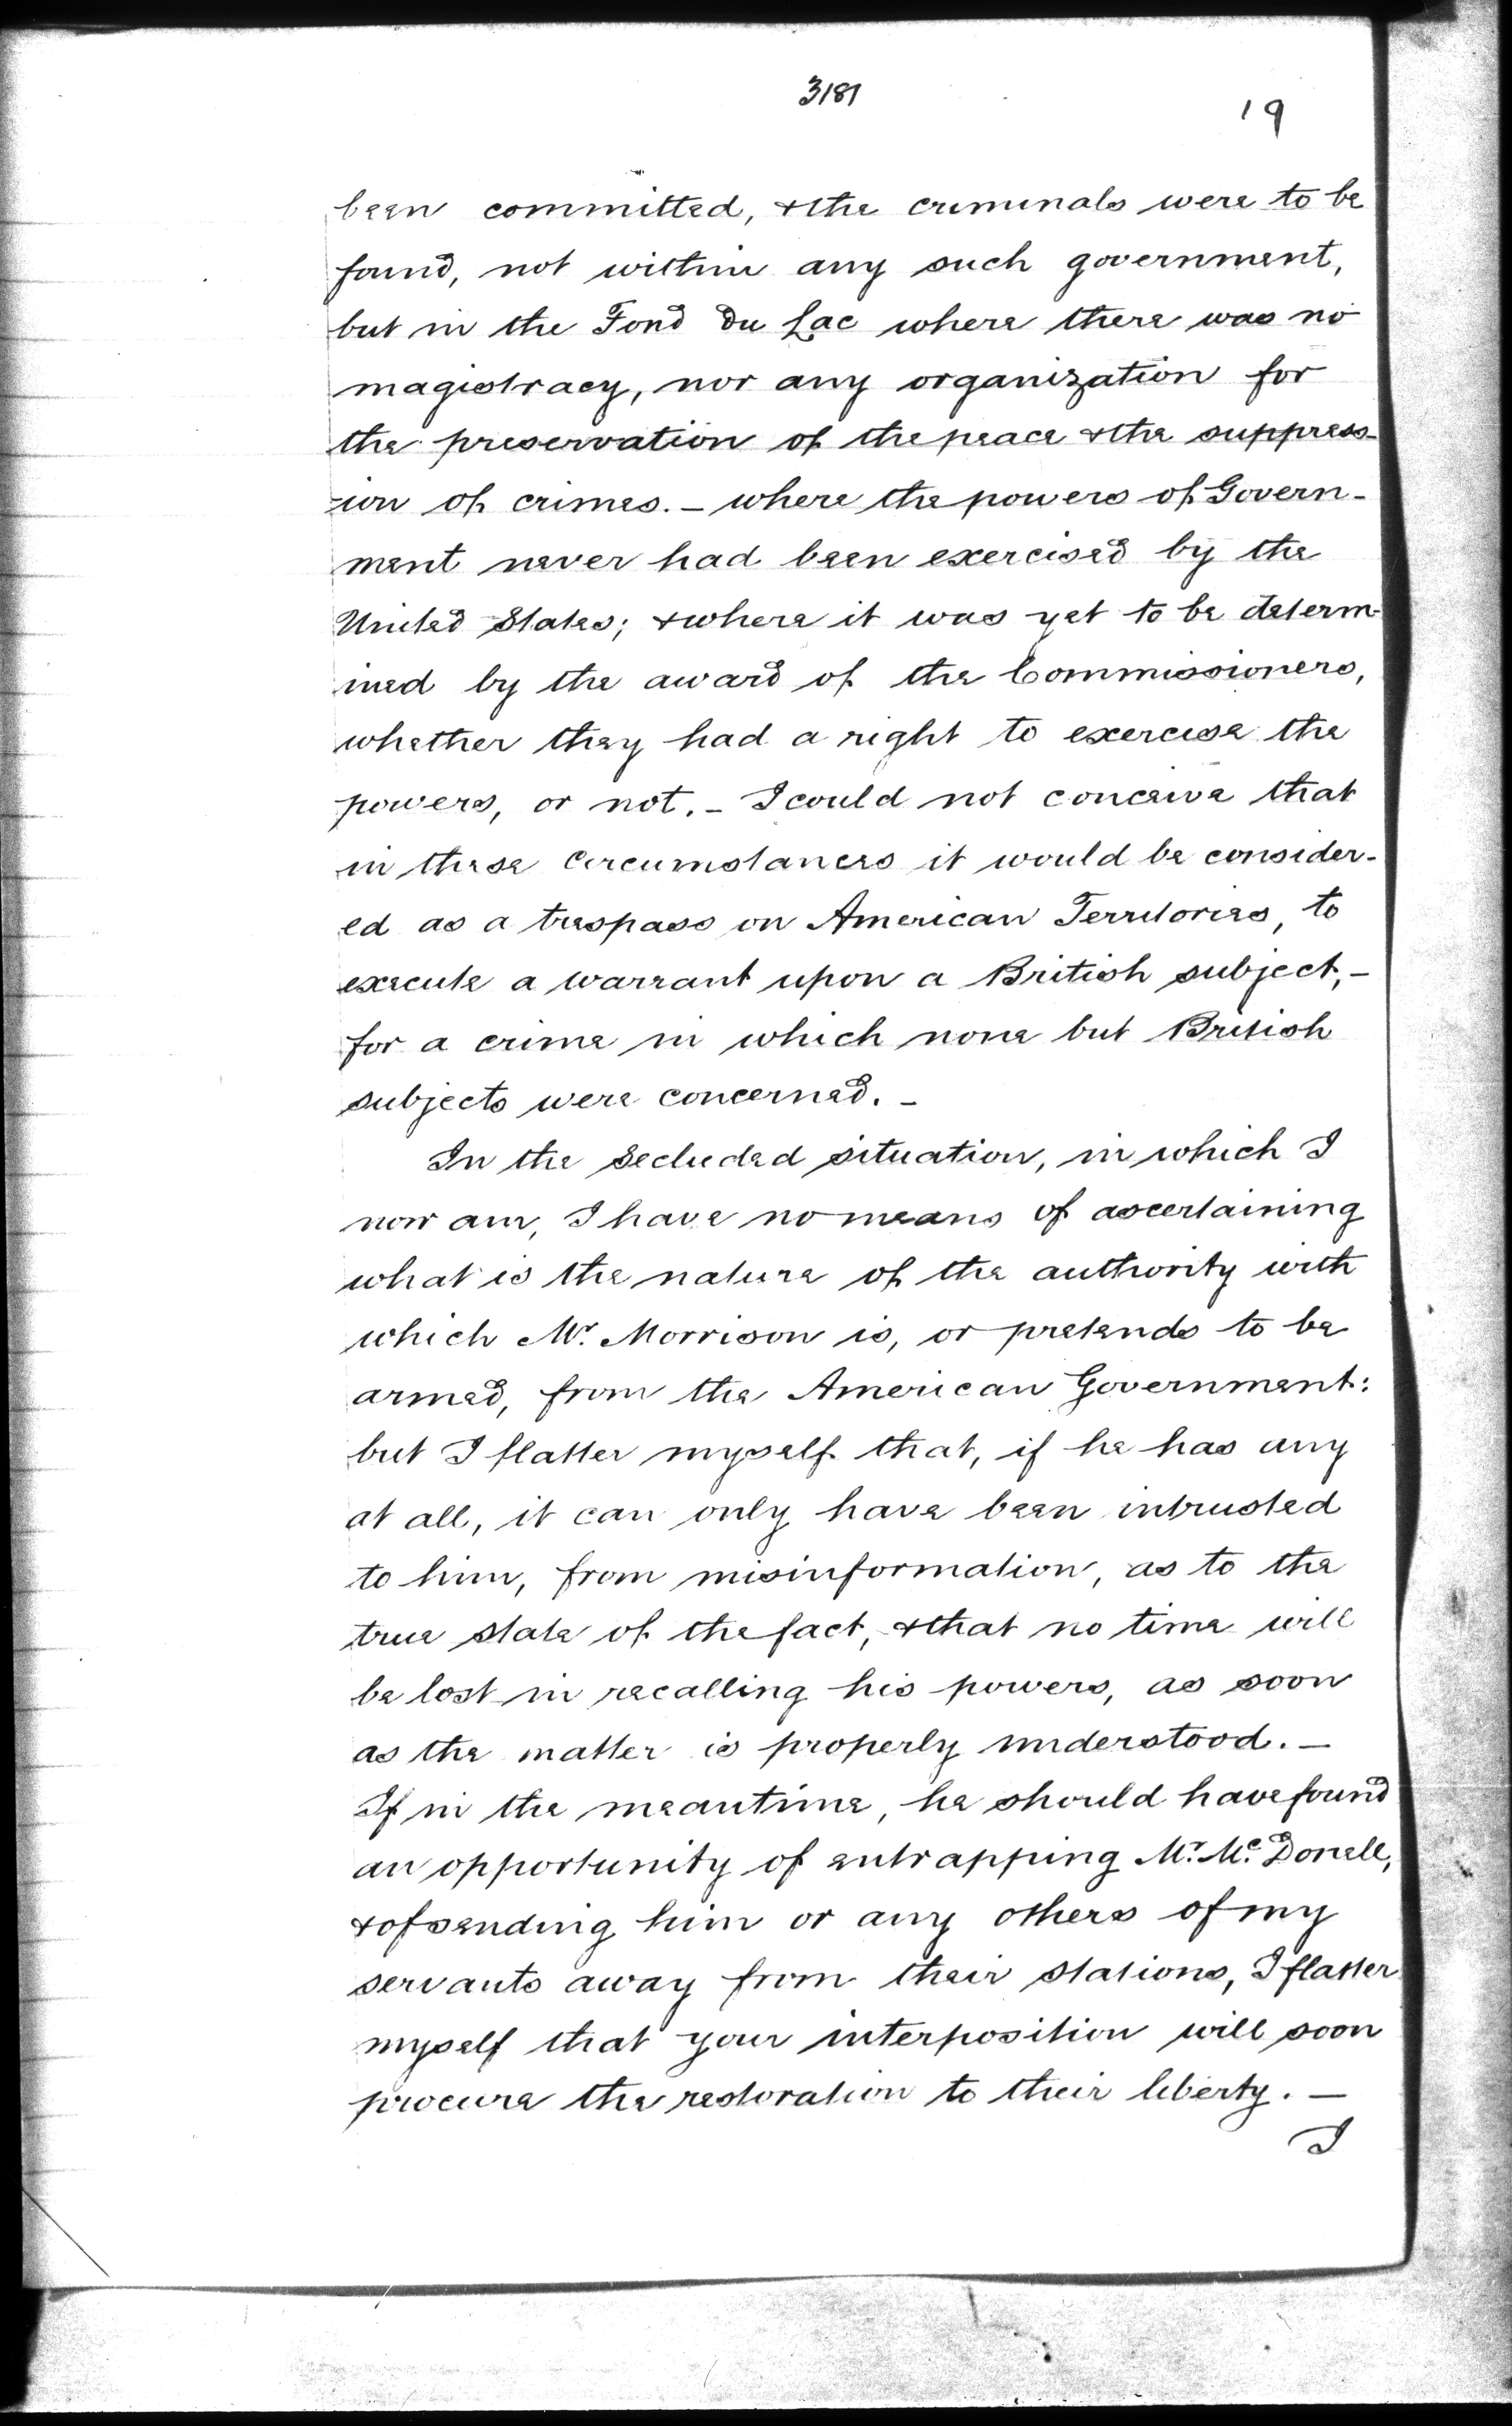 3181
19
been committed, & the criminals were to be
found, not within any such government,
but in the Fond du Lac where there was no
magistracy, nor any organization for
the preservation of the peace & the suppress-
ion of crimes. – where the powers of Govern-
ment never had been exercised by the
United States; & where it was yet to be determ-
ined by the award of the Commissioners,
whether they had a right to exercise the
powers, or not. – I could not conceive that
in these circumstances it would be consider-
ed as a trespass on American Territories, to
execute a warrant upon a British subject, –
for a crime in which none but British
subjects were concerned. –
In the secluded situation, in which I
now am, I have no means of ascertaining
what is the nature of the authority with
which Mr. Morrison is, or pretends to be
armed, from the American Government:
but I flatter myself that, if he has any
at all, it can only have been intrusted
to him, from misinformation, as to the
true state of the fact, & that no time will
be lost in recalling his powers, as soon
as the matter is properly understood. –
If in the meantime, he should have found
an opportunity of entrapping Mr. Mc. Donell,
& of sending him or any others of my
servants away from their stations, I flatter
myself that your interposition will soon
procure the restoration to their liberty. –
I